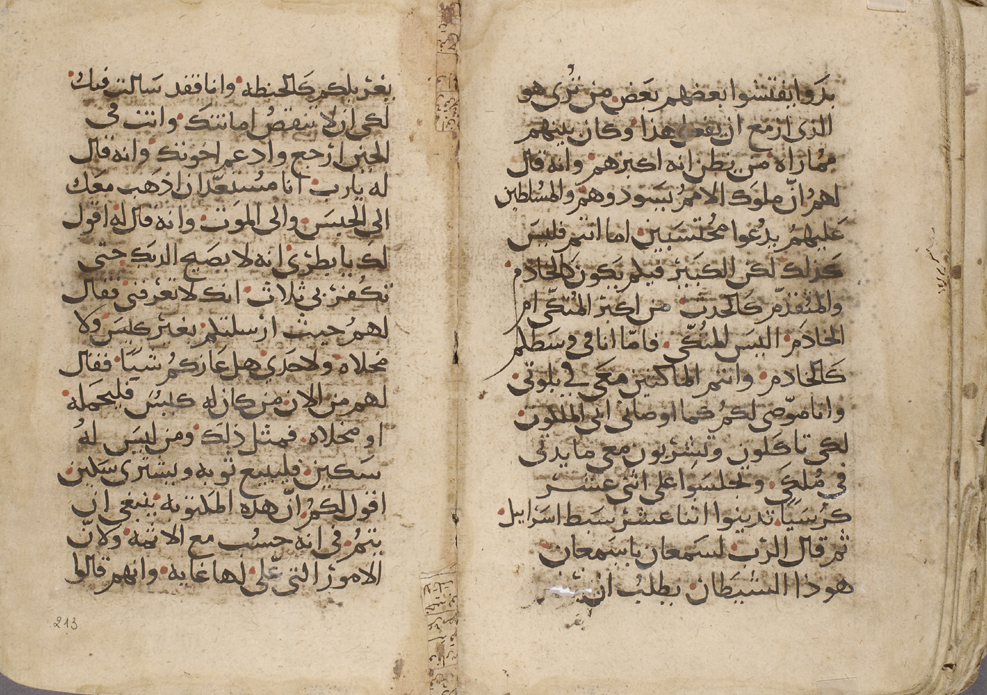 بدوا يفتشوا بعضهم بعض من ترى هو
الذى ازمع ان يفعل هذا وكان بينهم
مماراه من يظن انه اكبرهم وانه قال
لهم ان ملوك الامم يسودوهم والمسلطين
عليهم يدعوا محتسبين اما انتم فليس
كذلك لكن الكبير فيكم يكون كالخادم
والمتقدم كالحدث من اكبر المتكى ام
الخادم اليس المتكى فاما انا فى وسطكم
كالخادم وانتم الماكثين معى فى بلوتى
وانا موصى لكم كما اوصانى ابى الملكوت
لكى تاكلون وتشربون معى مايدتى
فى ملكى وتجلسوا على اثنى عشر
كرسيا تدينوا اثنا عشر سبط اسرايل
ثم قال الرب لسمعان يا سمعان
هوذا الشيطان يطلب ان
يغربلكم كالحنطه وانا فقد سالت فيك
لكى ان لا تنقص امانتك وانت فى
الحين ارجع وادعم اخوتك وانه قال
له يا رب انا مستعد ان اذهب معك
الى الحبس والى الموت وانه قال له اقول
لك يا بطرس انه لا يصيح الديك حتى
تكفر بى ثلاث انك لا تعرفنى فقال
لهم حيث ارسلتكم بغير كيس ولا
مخلاه ولا حدى هل عازكم شيا فقال
لهم من الان من كان له كيس فليحمله
او مخلاه فمثل ذلك ومن ليس له
سكين فليبيع ثوبه ويشترى سكين
اقول لكم ان هذه المكتوبه ينبغى ان
تتم فى انه حسب مع الاثمه ولان
الامور التى على لها غايه وانهم قالوا
213